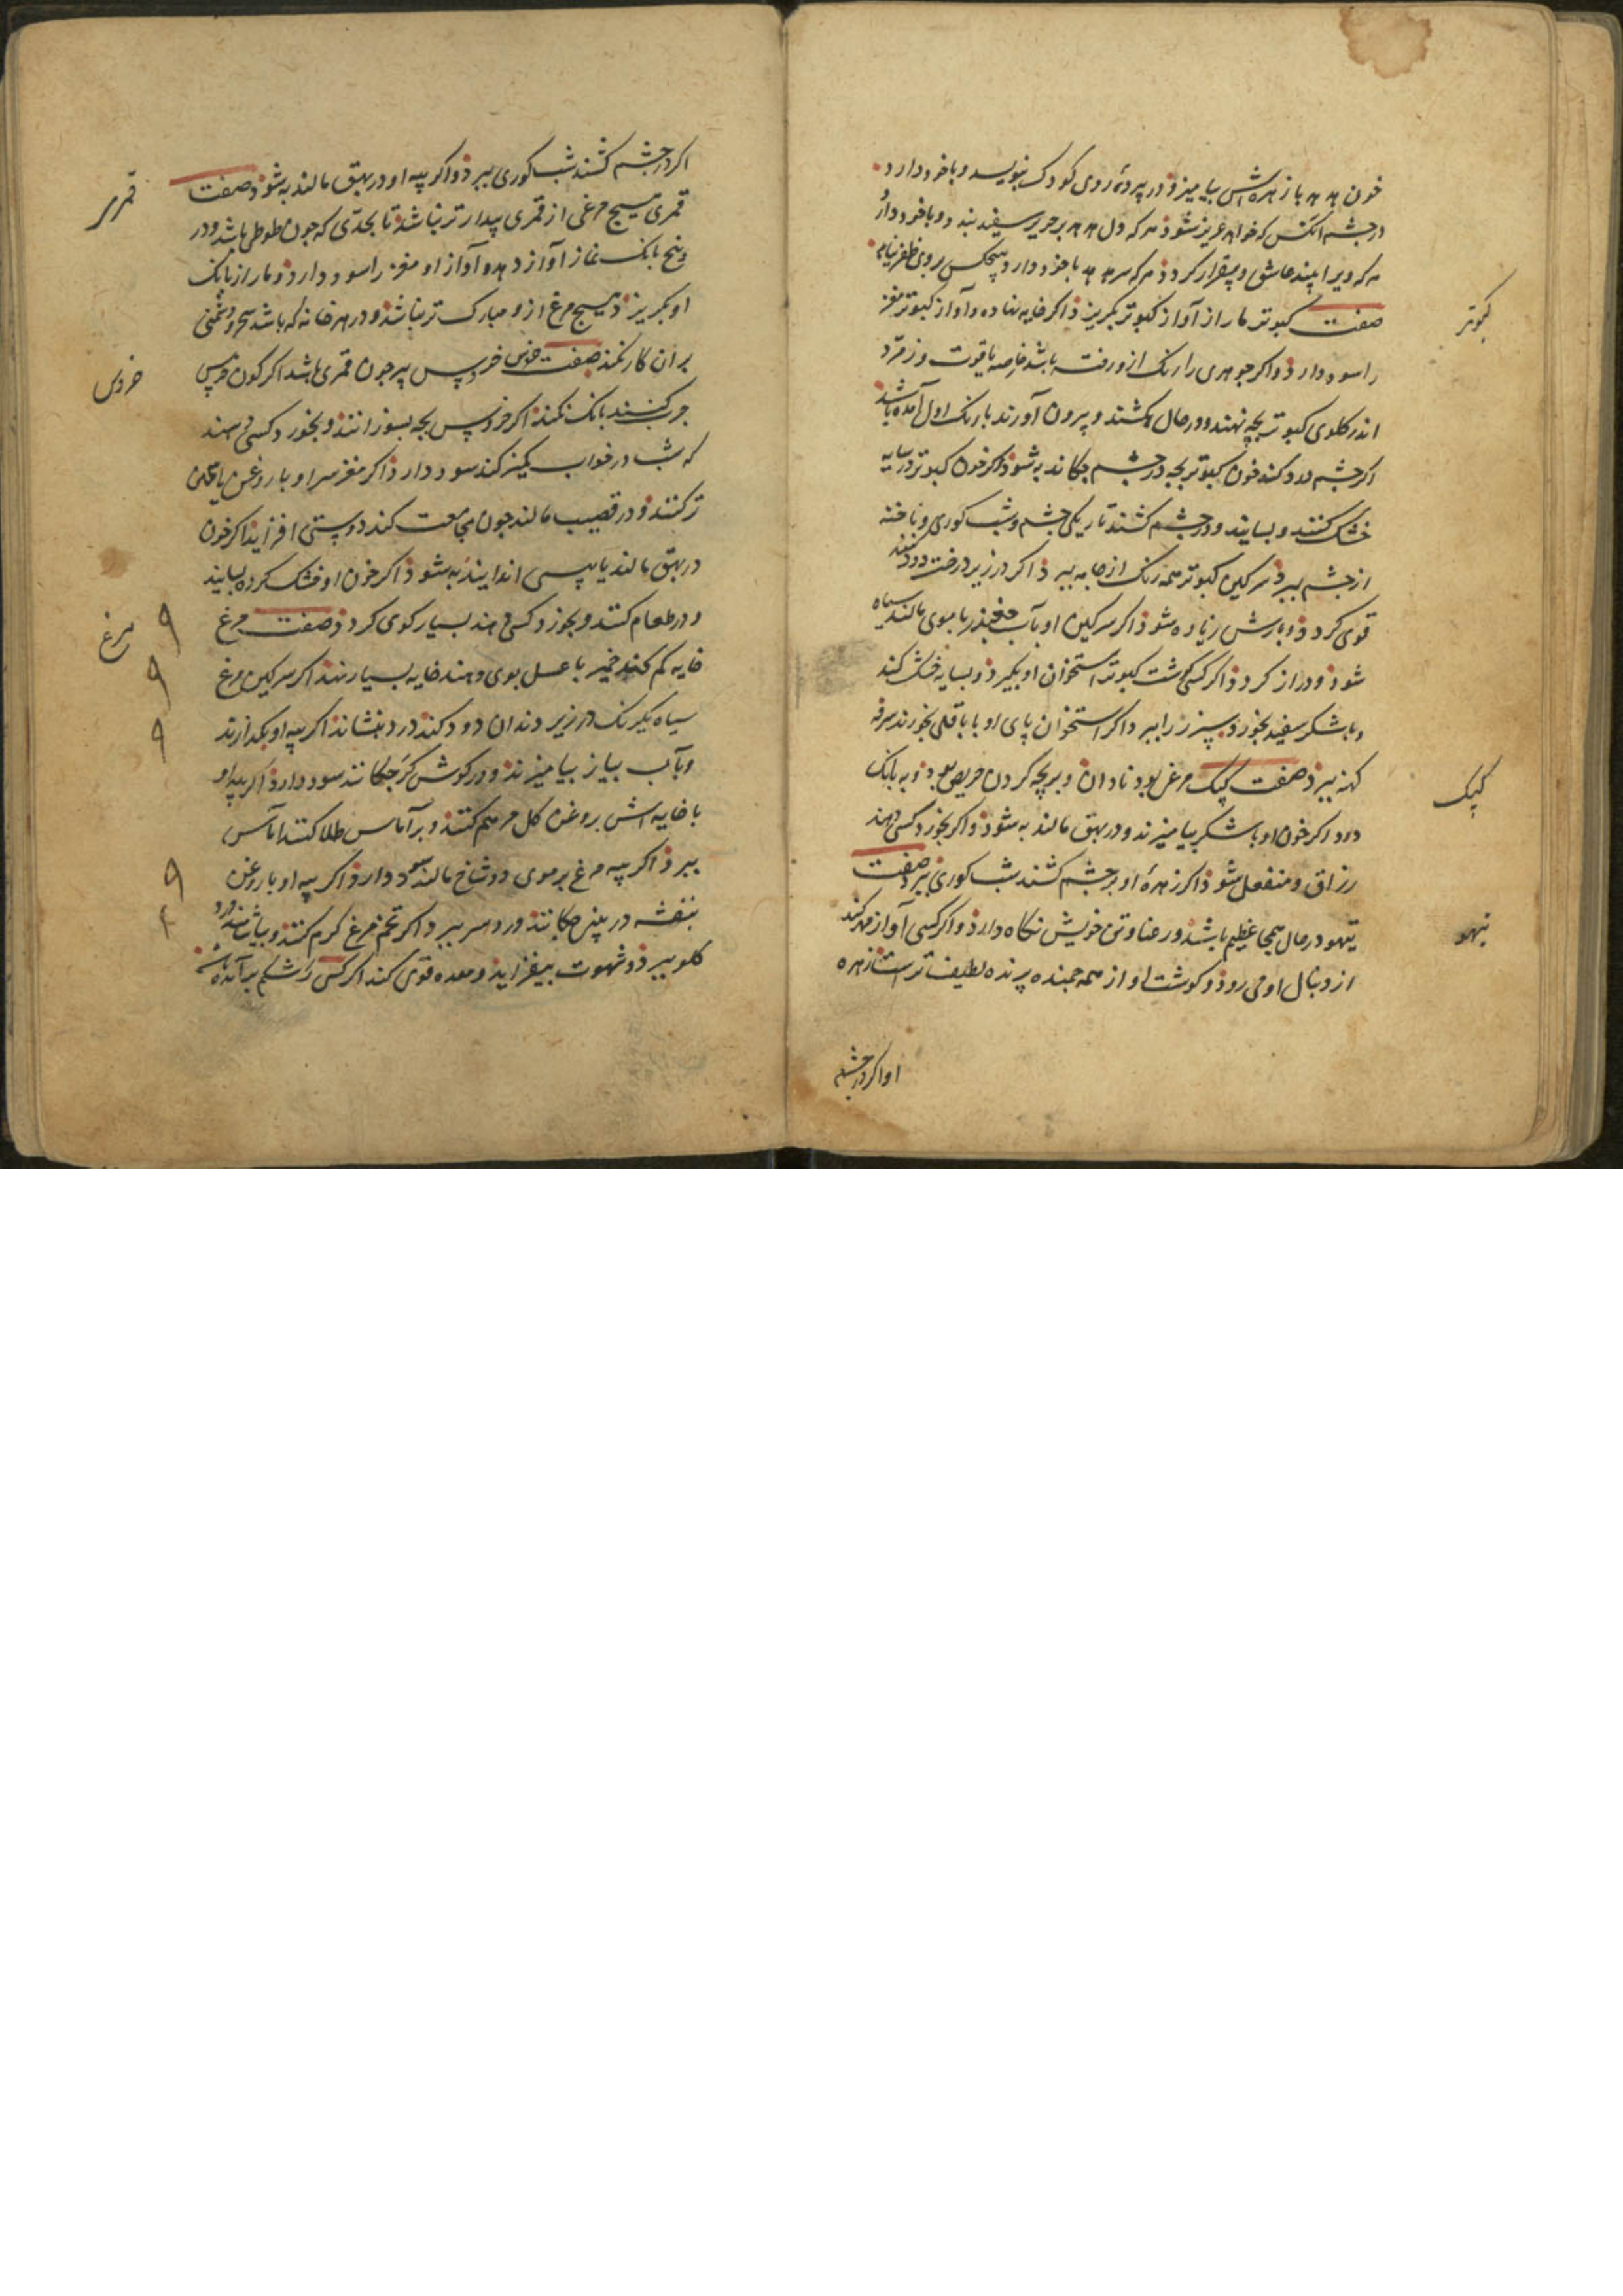 خون هدهد با زهره‌اش بیامیزذ در پردهٔ روی کودک بنویسد و با خود دارد
در چشم آنکس که خواهد عزیز شوذ هر که دل هدهد بر حریر سفید بندد و با خود دارد
هر که ویرا بیند عاشق و بیقرار کردد هر که سر هدهد با خود دارد هیچکس بر وی ظفر نیابد
کبوتر
صفت کبوتر مار از آواز کبوتر بکریزد اکر خایه نهاده و آواز کبوتر مغز
را سود دارد و اکر جوهری را رنک ازو رفته باشد خاصه یاقوت و زمرد
اندر کلوی کبوتر بچه نهند و در حال بکشند و بیرون آورند با رنک اول آمده باشد
اکر چشم درد کند خون کبوتر بچه در چشم چکانند به شوذ اکر خون کبوتر در سایه
خشک کنند و بسایند و در چشم کشند تاریکی چشم و شب کوری و ناخنه
از چشم ببرد سرکین کبوتر همه رنک از جامه ببرد اکر در زیر درخت دود کنند
قوی کردد و بارش زیاده شود اکر سرکین او بآب جغندر با موی مالند سیاه
شود و دراز کردد اکر کسی کوشت کبوتر استخوان او بکیرد و بسایه خشک کند
و با شکر سفید بخورد سپرز را ببرد اکر استخوان پای او با باقلی بخورند سرفه
کبک
کهنه ببرد صفت کبک مرغی بود نادان و بر بچه کردن حریص بود و به بانک
دود اکر خون او با شکر بیامیزند و در بهق مالند به شود و اکر بخورد کسی دهند
رزاق و منفعل شود اکر زهرهٔ او بر چشم کشند شب کوری ببرد صفت
تیهو
تیهو در حال هیجا عظیم باشد و رعنا و تن خویش نکاه دارد و اکر کسی آواز مهر کند
از دنبال او می رود و کوشت او از همه جمنده پرنده لطیف تر است زهره
او اکر در چشم
اکر در چشم کشند شب کوری ببرد و اکر پیه او در بهق مالند به شود صفت
قمری
قمری هیچ مرغی از قمری بیدارتر نباشد تا بحدی که چون طوطی باشد و در
پنج بانک نماز آواز دهد و آواز او مغز را سود دارد و مار از بانک
او بکریزد هیچ مرغ ازو مبارک تر نباشد و در هر خانه که باشد سحر و دشمنی
خروس
بر آن کار نکند صفت خروس خروس پیر چون قمری باشد اکر کون خروس
چرب کنند بانک نکند اکر خروس بچه بسوزانند و بخورد کسی دهند
که شب در خواب کمیز کند سود دارد اکر مغز سر او با روغن
تر کنند و در قضیب مالند چون مجامعت کند دوستی افزاید اکر خون
در بهق مالند یا پیسی اندایند به شود اکر خون او خشک کرده بسایند
مرغ
و در طعام کنند و بخورد کسی دهند بسیار کوی کردد صفت مرغ
خایه کم کند خمیر با عسل بوی دهند خایه بسیار نهد اکر سرکین مرغ
سیاه یکرنک در زیر دندان دود کند درد بنشاند اکر پیه او بکدازند
و بآب پیاز بیامیزند و در کوش کر چکانند سود دارد اکر پیه او
با خایه‌اش بروغن کل مرهم کنند و بر آماس طلا کنند آماس
ببرد اکر پیه مرغ بر موی دو شاخ مالند سود دارد اکر پیه او با روغن
بنفشه در بینی چکانند درد سر ببرد اکر تخم مرغ کرم کنند و بیاشامند درد
کلو ببرد و شهوت بیفزاید و معده قوی کند اکر کسی را شکم برآمده باشد